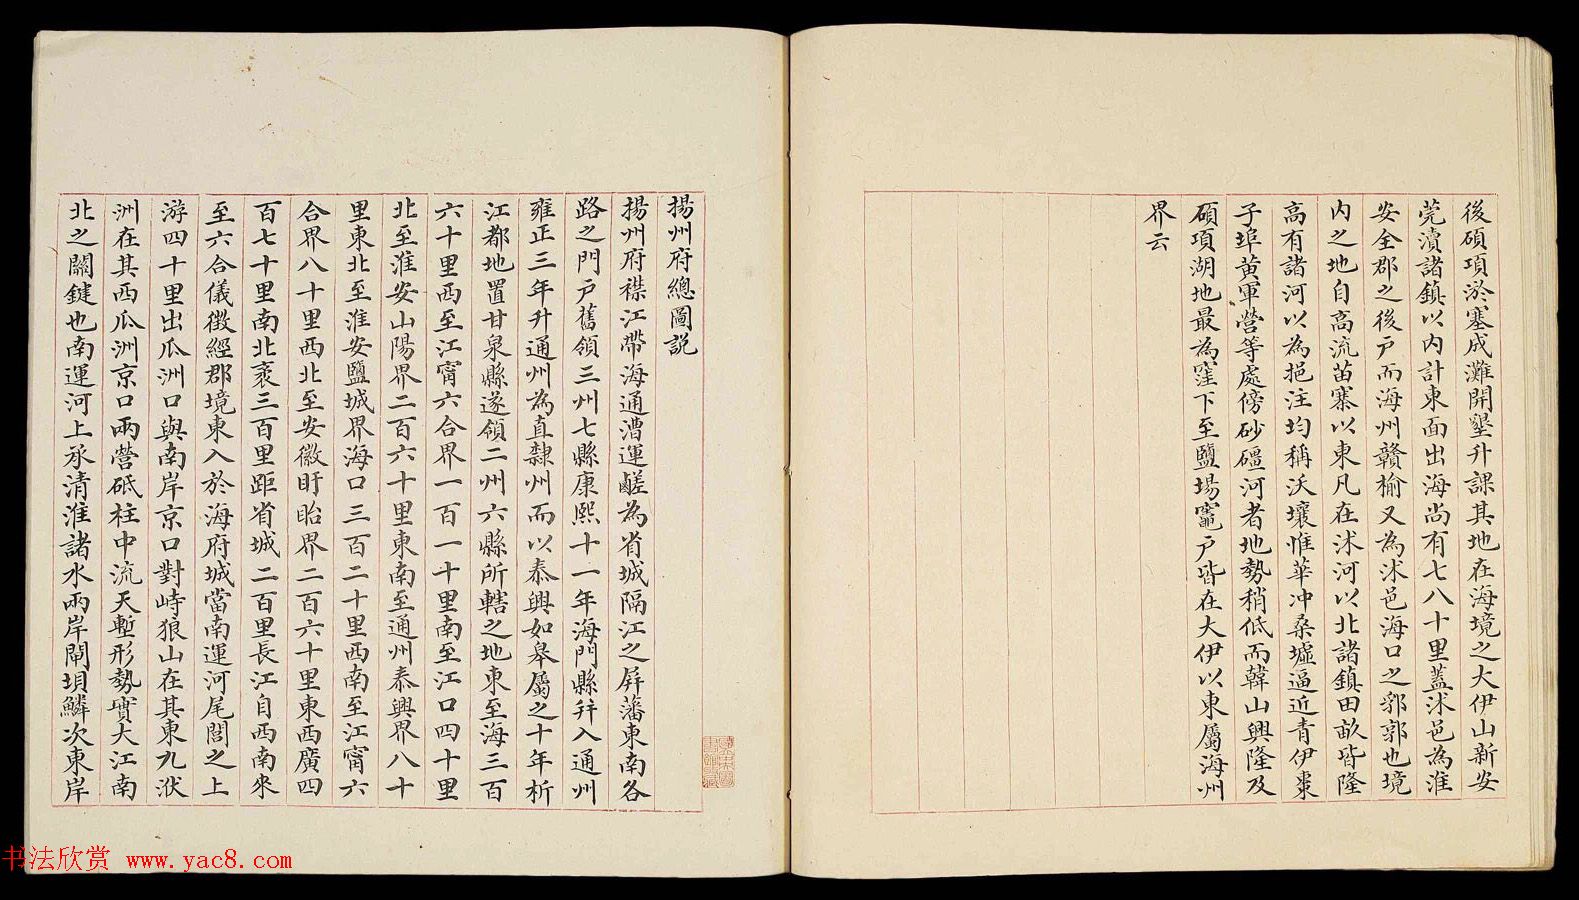 後碩項淤塞成灘開墾升課其地在海境之大伊山新安
莞瀆諸鎮以内計東面出海尚有七八十里蓋沭邑為淮
安全郡之後戸而海州贛榆又為沭邑海口之郛郭也境
内之地自高流苗寨以東凡在沭河以北諸鎮田畝皆隆
高有諸河以為挹注均稱沃壤惟華冲桑墟逼近青伊棗
子埠黄軍營等處傍砂礓河者地勢稍低而韓山興隆及
碩項湖地最為窪下至鹽場竈戸皆在大伊以東屬海州
界云
揚州府總圖説
揚州府襟江帶海通漕運鹺為省城隔江之屏藩東南各
路之門戸舊領三州七縣康熙十一年海門縣并入通州
雍正三年升通州為直隸州而以泰興如皋屬之十年析
江都地置甘泉縣遂領二州六縣所轄之地東至海三百
六十里西至江甯六合界一百一十里南至江口四十里
北至淮安山陽界二百六十里東南至通州泰興界八十
里東北至淮安鹽城界海口三百二十里西南至江甯六
合界八十里西北至安徽盱眙界二百六十里東西廣四
百七十里南北袤三百里距省城二百里長江自西南來
至六合儀徴經郡境東入於海府城當南運河尾閭之上
游四十里出瓜洲口與南岸京口對峙狼山在其東九洑
洲在其西瓜洲京口兩營砥柱中流天塹形勢實大江南
北之關鍵也南運河上承清淮諸水兩岸閘壩鱗次東岸
书法欣赏 www.yac8.com